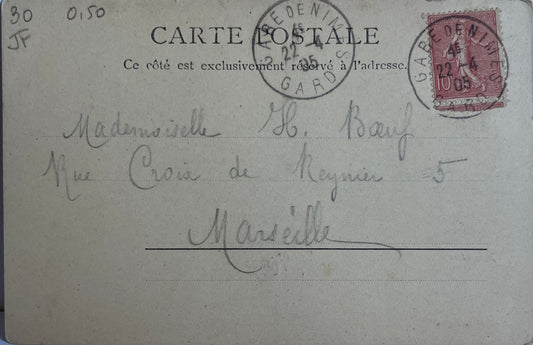 30 0,50
JF
CARTE POSTALE
Ce côté est exclusivement réservé à l'adresse.
GARE DE NIMES
4E
22 - 4
05
GARD
GARE DE NIMES
4E
22 - 4
05
GARD
10
Mademoiselle H. Bœuf
Rue Croix de Reynier 5
Marseille